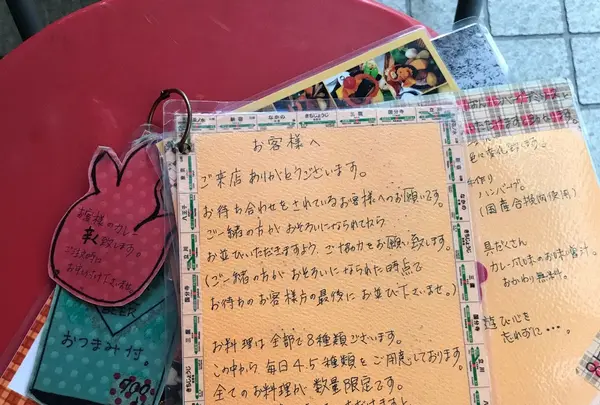 お客様へ
ご来店ありがとうございます。
お待ち合わせをされているお客様へのお願いです。
ご一緒の方がおそろいになられてから
お並びいただきますよう、ご協力をお願い致します。
(ご一緒の方がおそろいになられた時点で
お待ちのお客様方の最後にお並び下さいませ。)
お料理は全部で8種類ございます。
この中から毎日4.5種類をご用意しております。
全てのお料理が数量限定です。
辛く致します。
BEER
おつまみ付。
ハンバーグ。
(国産合挽肉使用)
具だくさん
カレー風味のお味噌汁。
おかわり無料。
遊び心を
忘れずに・・・。